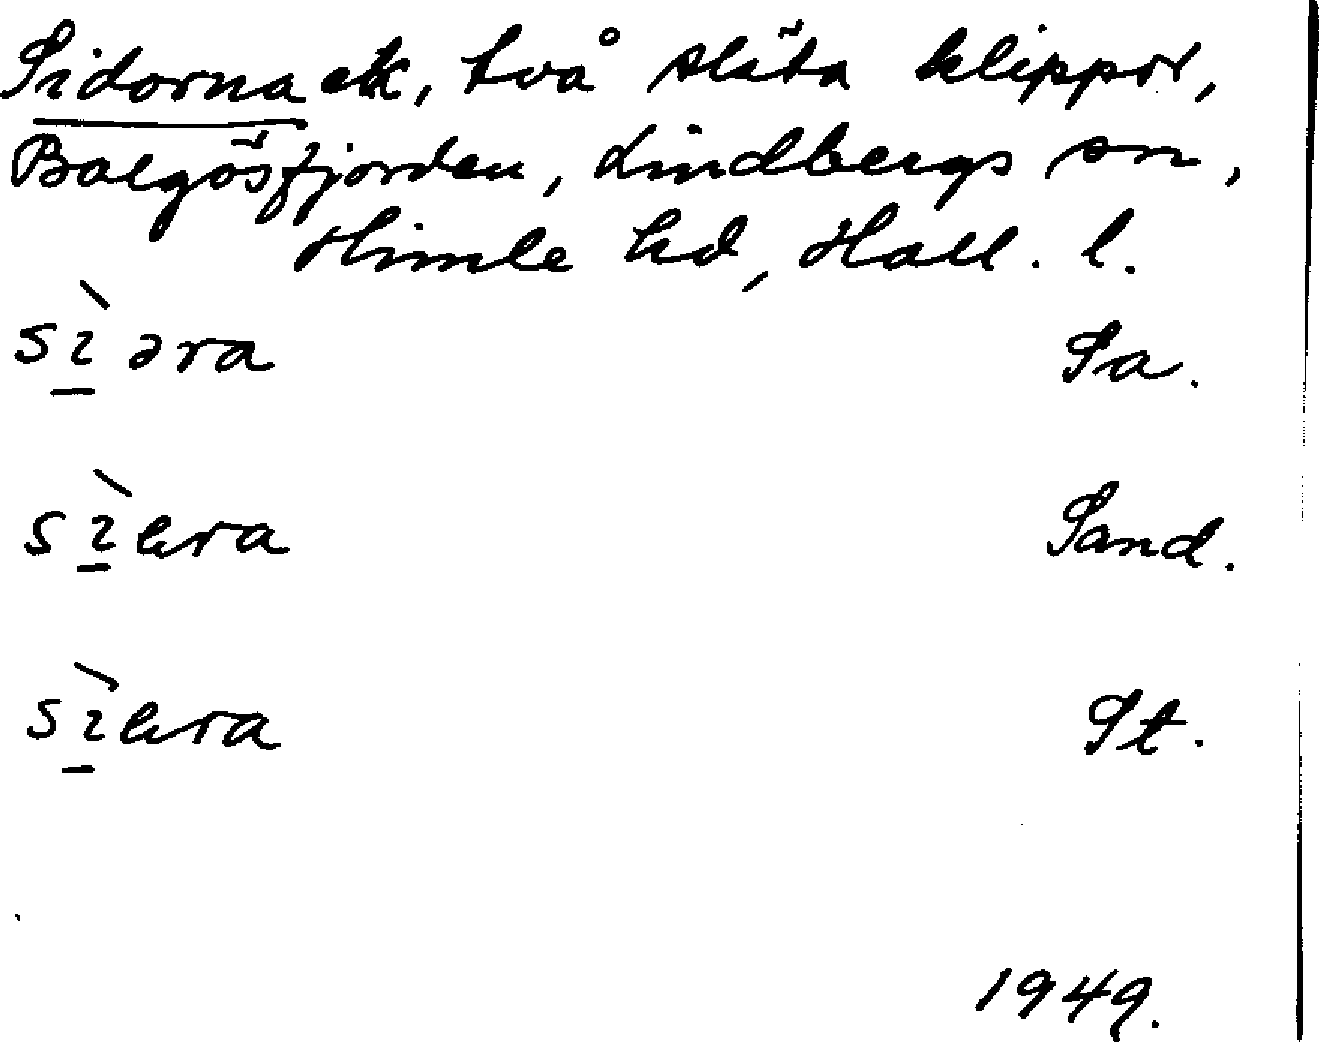 Sidorna ek, två släta klippor,
Balgösfjorden, Lindbergs sn,
Himle hd, Hall. l.
sı̀ əra Sa.
sı̀əra Sand.
sı̀əra St.
1949.